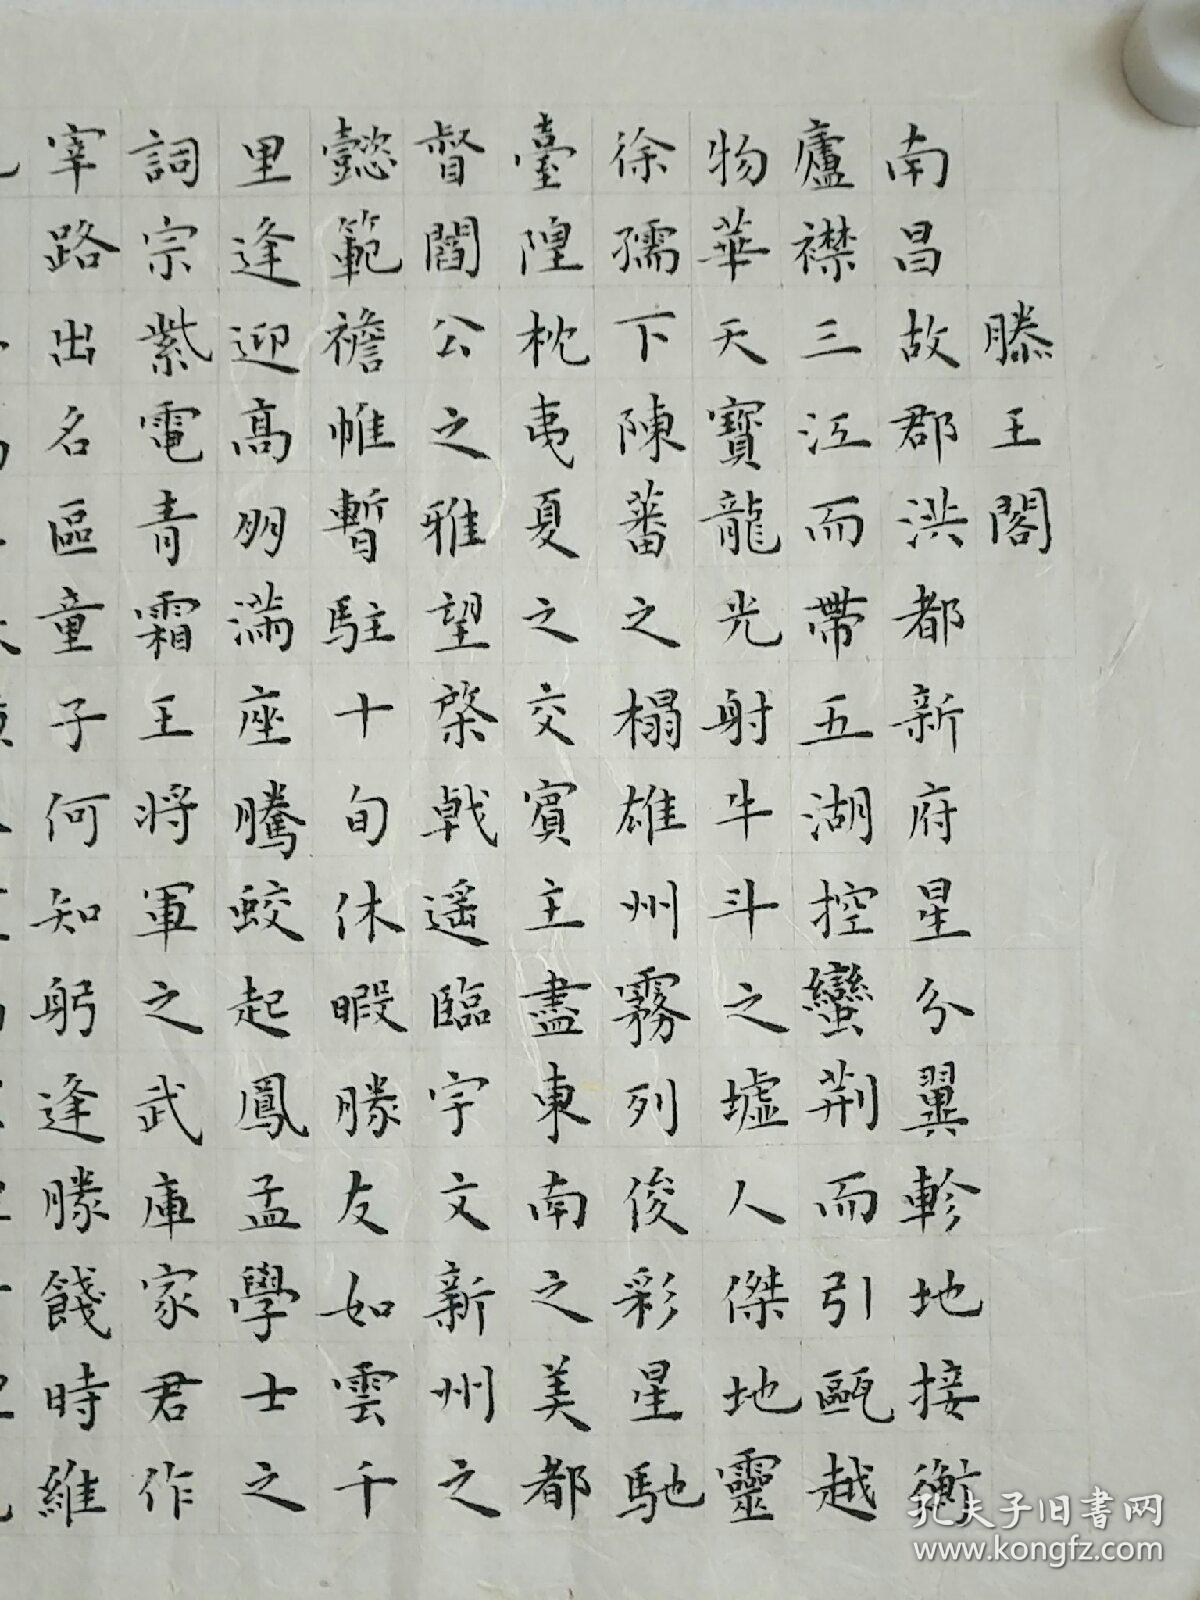 滕王閣
南昌故郡洪都新府星分翼軫地接衡
廬襟三江而帶五湖控蠻荆而引甌越
物華天寶龍光射牛斗之墟人傑地靈
徐孺下陳蕃之榻雄州霧列俊彩星馳
臺隍枕夷夏之交賓主盡東南之美都
督閻公之雅望棨戟遥臨宇文新州之
懿範襜帷暫駐十旬休暇勝友如雲千
里逢迎髙明滿座騰蛟起鳳孟學士之
詞宗紫電青霜王將軍之武庫家君作
宰路出名區童子何知躬逢勝餞時維
孔夫子旧书网
www.kongfz.com